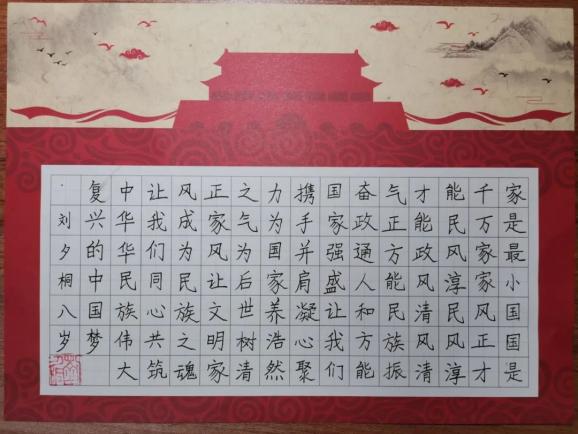 家是最小国国是
千万家家风正才
能民风淳民风淳
才能政风清风清
气正方能民族振
奋政通人和方能
国家强盛让我们
携手并肩凝心聚
力为国家养浩然
之气为后世树清
正家风让文明家
风成为民族之魂
让我们同心共筑
中华华民族伟大
复兴的中国梦
·刘夕桐八岁